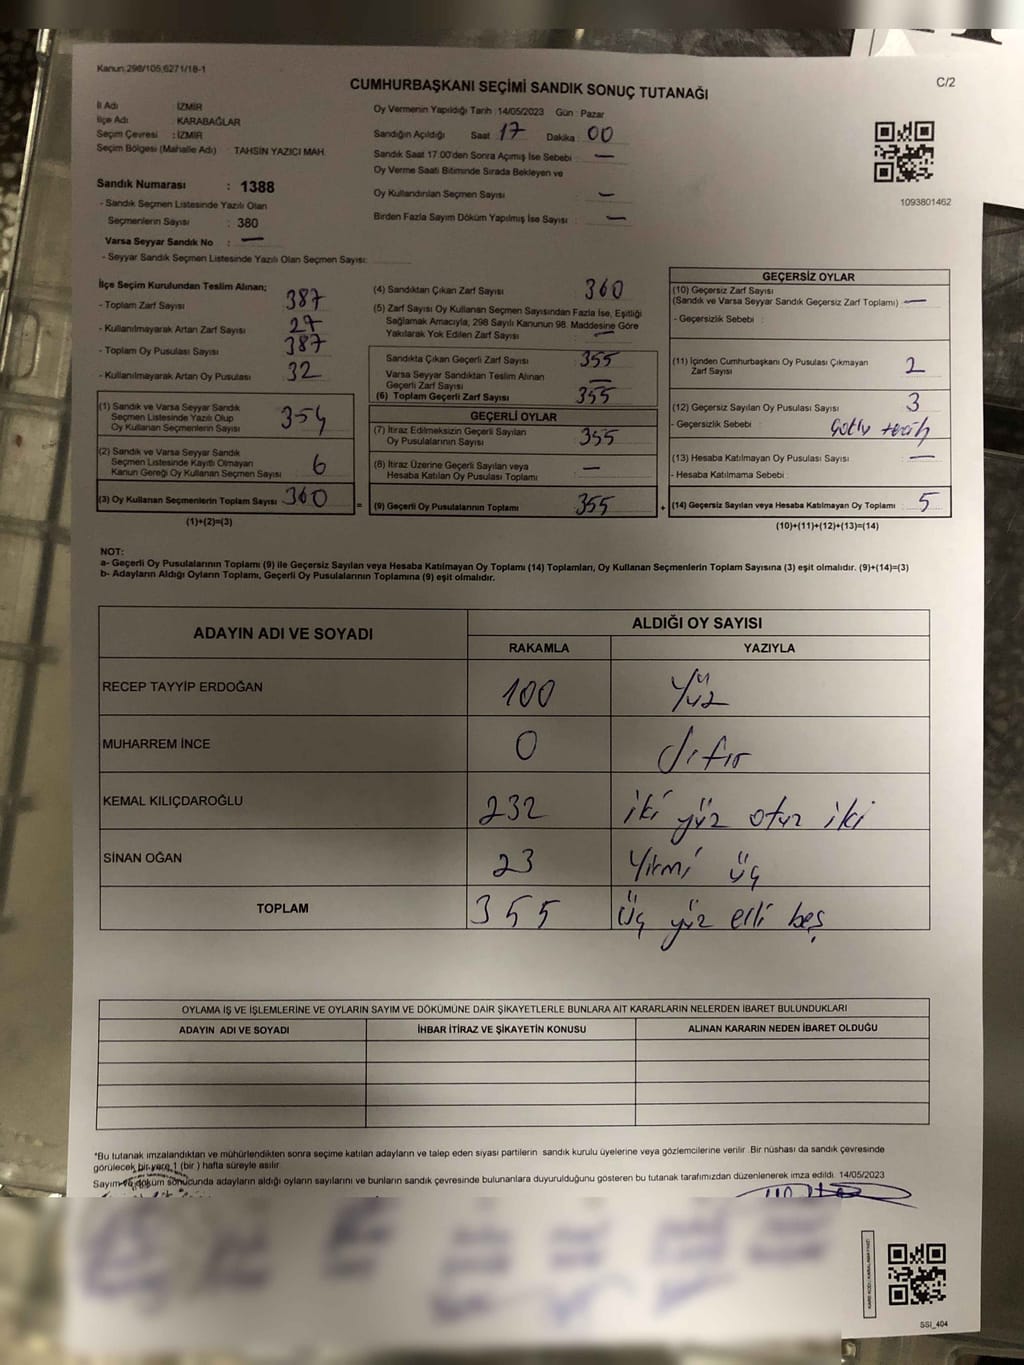 Kanun:298/105,6271/18-1
C/2
CUMHURBAŞKANI SEÇİMİ SANDIK SONUÇ TUTANAĞI
İl Adı : İZMİR
İlçe Adı : KARABAĞLAR
Seçim Çevresi : İZMİR
Seçim Bölgesi (Mahalle Adı) : TAHSİN YAZICI MAH.
Sandık Numarası : 1388
- Sandık Seçmen Listesinde Yazılı Olan
Seçmenlerin Sayısı : 380
Varsa Seyyar Sandık No : —
- Seyyar Sandık Seçmen Listesinde Yazılı Olan Seçmen Sayısı:
Oy Vermenin Yapıldığı Tarih :14/05/2023 Gün : Pazar
Sandığın Açıldığı Saat : 17 Dakika : 00
Sandık Saat 17.00'den Sonra Açımış İse Sebebi : —
Oy Verme Saati Bitiminde Sırada Bekleyen ve
Oy Kullandırılan Seçmen Sayısı : —
Birden Fazla Sayım Döküm Yapılmış İse Sayısı : —
1093801462
İlçe Seçim Kurulundan Teslim Alınan;
- Toplam Zarf Sayısı : 387
- Kullanılmayarak Artan Zarf Sayısı : 27
- Toplam Oy Pusulası Sayısı : 387
- Kullanılmayarak Artan Oy Pusulası : 32
(1) Sandık ve Varsa Seyyar Sandık
Seçmen Listesinde Yazılı Olup
Oy Kullanan Seçmenlerin Sayısı : 354
(2) Sandık ve Varsa Seyyar Sandık
Seçmen Listesinde Kayıtlı Olmayan
Kanun Gereği Oy Kullanan Seçmen Sayısı : 6
(3) Oy Kullanan Seçmenlerin Toplam Sayısı : 360
(1)+(2)=(3)
=
(4) Sandıktan Çıkan Zarf Sayısı : 360
(5) Zarf Sayısı Oy Kullanan Seçmen Sayısından Fazla İse, Eşitliği
Sağlamak Amacıyla, 298 Sayılı Kanunun 98. Maddesine Göre
Yakılarak Yok Edilen Zarf Sayısı : —
Sandıkta Çıkan Geçerli Zarf Sayısı : 355
Varsa Seyyar Sandıktan Teslim Alınan
Geçerli Zarf Sayısı : —
(6) Toplam Geçerli Zarf Sayısı : 355
GEÇERLİ OYLAR
(7) İtiraz Edilmeksizin Geçerli Sayılan
Oy Pusulalarının Sayısı : 355
(8) İtiraz Üzerine Geçerli Sayılan veya
Hesaba Katılan Oy Pusulası Toplamı : —
(9) Geçerli Oy Pusulalarının Toplamı : 355
+
GEÇERSİZ OYLAR
(10) Geçersiz Zarf Sayısı
(Sandık ve Varsa Seyyar Sandık Geçersiz Zarf Toplamı) : —
- Geçersizlik Sebebi :
(11) İçinden Cumhurbaşkanı Oy Pusulası Çıkmayan
Zarf Sayısı : 2
(12) Geçersiz Sayılan Oy Pusulası Sayısı : 3
- Geçersizlik Sebebi :
(13) Hesaba Katılmayan Oy Pusulası Sayısı : —
- Hesaba Katılmama Sebebi :
(14) Geçersiz Sayılan veya Hesaba Katılmayan Oy Toplamı : 5
(10)+(11)+(12)+(13)=(14)
NOT:
a- Geçerli Oy Pusulalarının Toplamı (9) ile Geçersiz Sayılan veya Hesaba Katılmayan Oy Toplamı (14) Toplamları, Oy Kullanan Seçmenlerin Toplam Sayısına (3) eşit olmalıdır. (9)+(14)=(3)
b- Adayların Aldığı Oyların Toplamı, Geçerli Oy Pusulalarının Toplamına (9) eşit olmalıdır.
ADAYIN ADI VE SOYADI ALDIĞI OY SAYISI
RAKAMLA YAZIYLA
RECEP TAYYİP ERDOĞAN 100 Yüz
MUHARREM İNCE 0 sıfır
KEMAL KILIÇDAROĞLU 232 iki yüz otuz iki
SİNAN OĞAN 23 Yirmi üç
TOPLAM 355 Üç yüz elli beş
OYLAMA İŞ VE İŞLEMLERİNE VE OYLARIN SAYIM VE DÖKÜMÜNE DAİR ŞİKAYETLERLE BUNLARA AİT KARARLARIN NELERDEN İBARET BULUNDUKLARI
ADAYIN ADI VE SOYADI İHBAR İTİRAZ VE ŞİKAYETİN KONUSU ALINAN KARARIN NEDEN İBARET OLDUĞU
*Bu tutanak imzalandıktan ve mühürlendikten sonra seçime katılan adayların ve talep eden siyasi partilerin sandık kurulu üyelerine veya gözlemcilerine verilir. Bir nüshası da sandık çevresinde
görülecek bir yere 1 (bir ) hafta süreyle asılır.
Sayım ve döküm sonucunda adayların aldığı oyların sayılarını ve bunların sandık çevresinde bulunanlara duyurulduğunu gösteren bu tutanak tarafımızdan düzenlenerek imza edildi. 14/05/2023
SSİ_404